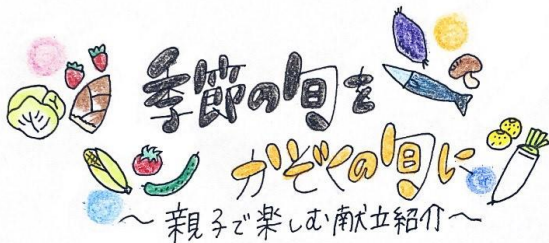 季節の旬を
かぞくの旬に
～親子で楽しむ献立紹介～